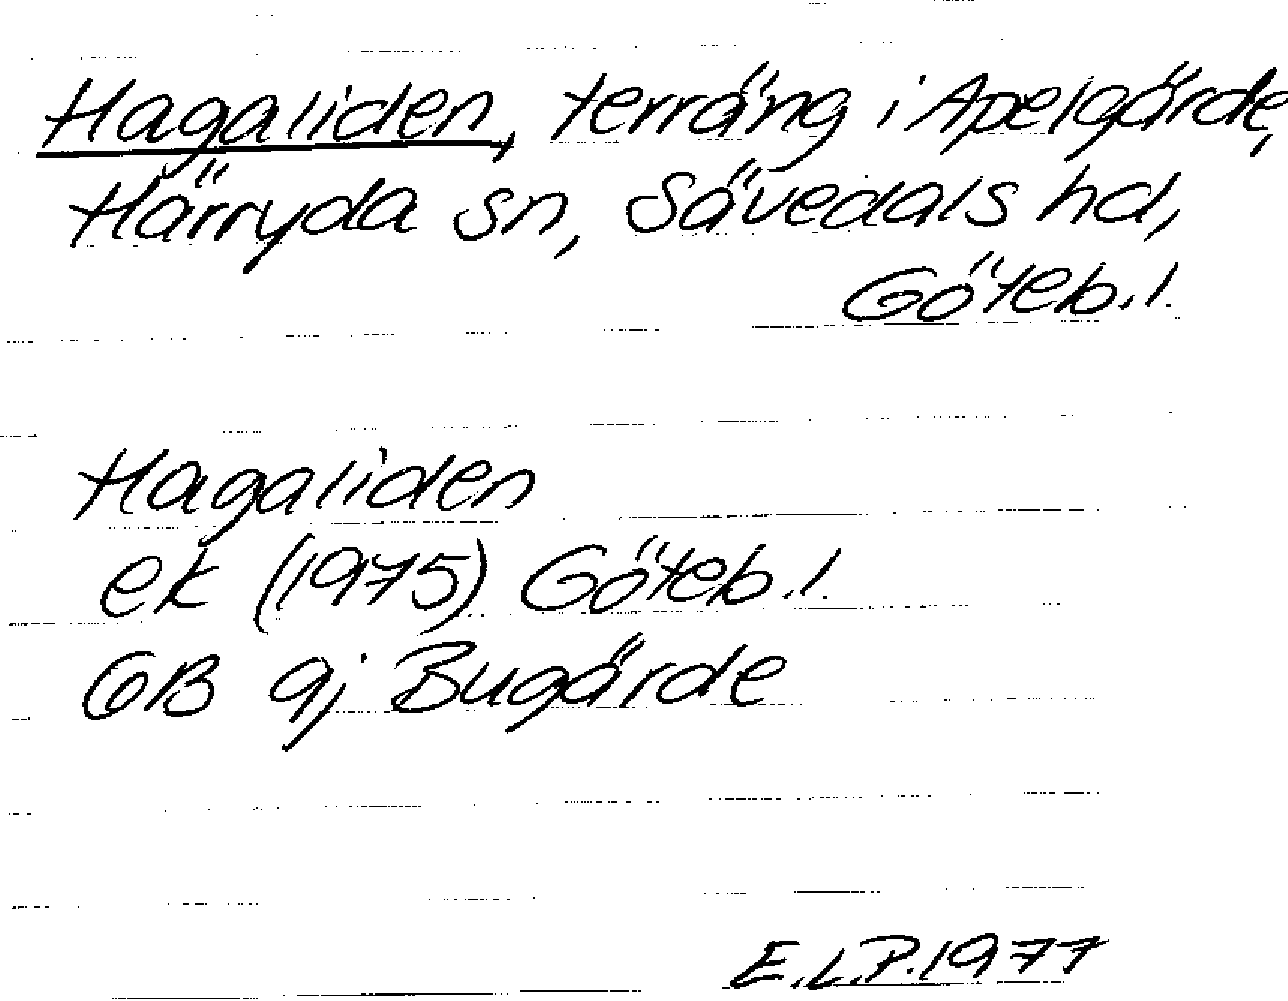 Hagaliden, terräng i Apelgärde,
Härryda sn, Sävedals hd,
Göteb. l.
Hagaliden
ek (1975) Göteb. l.
GB 9j Bugärde
E.L.P. 1977